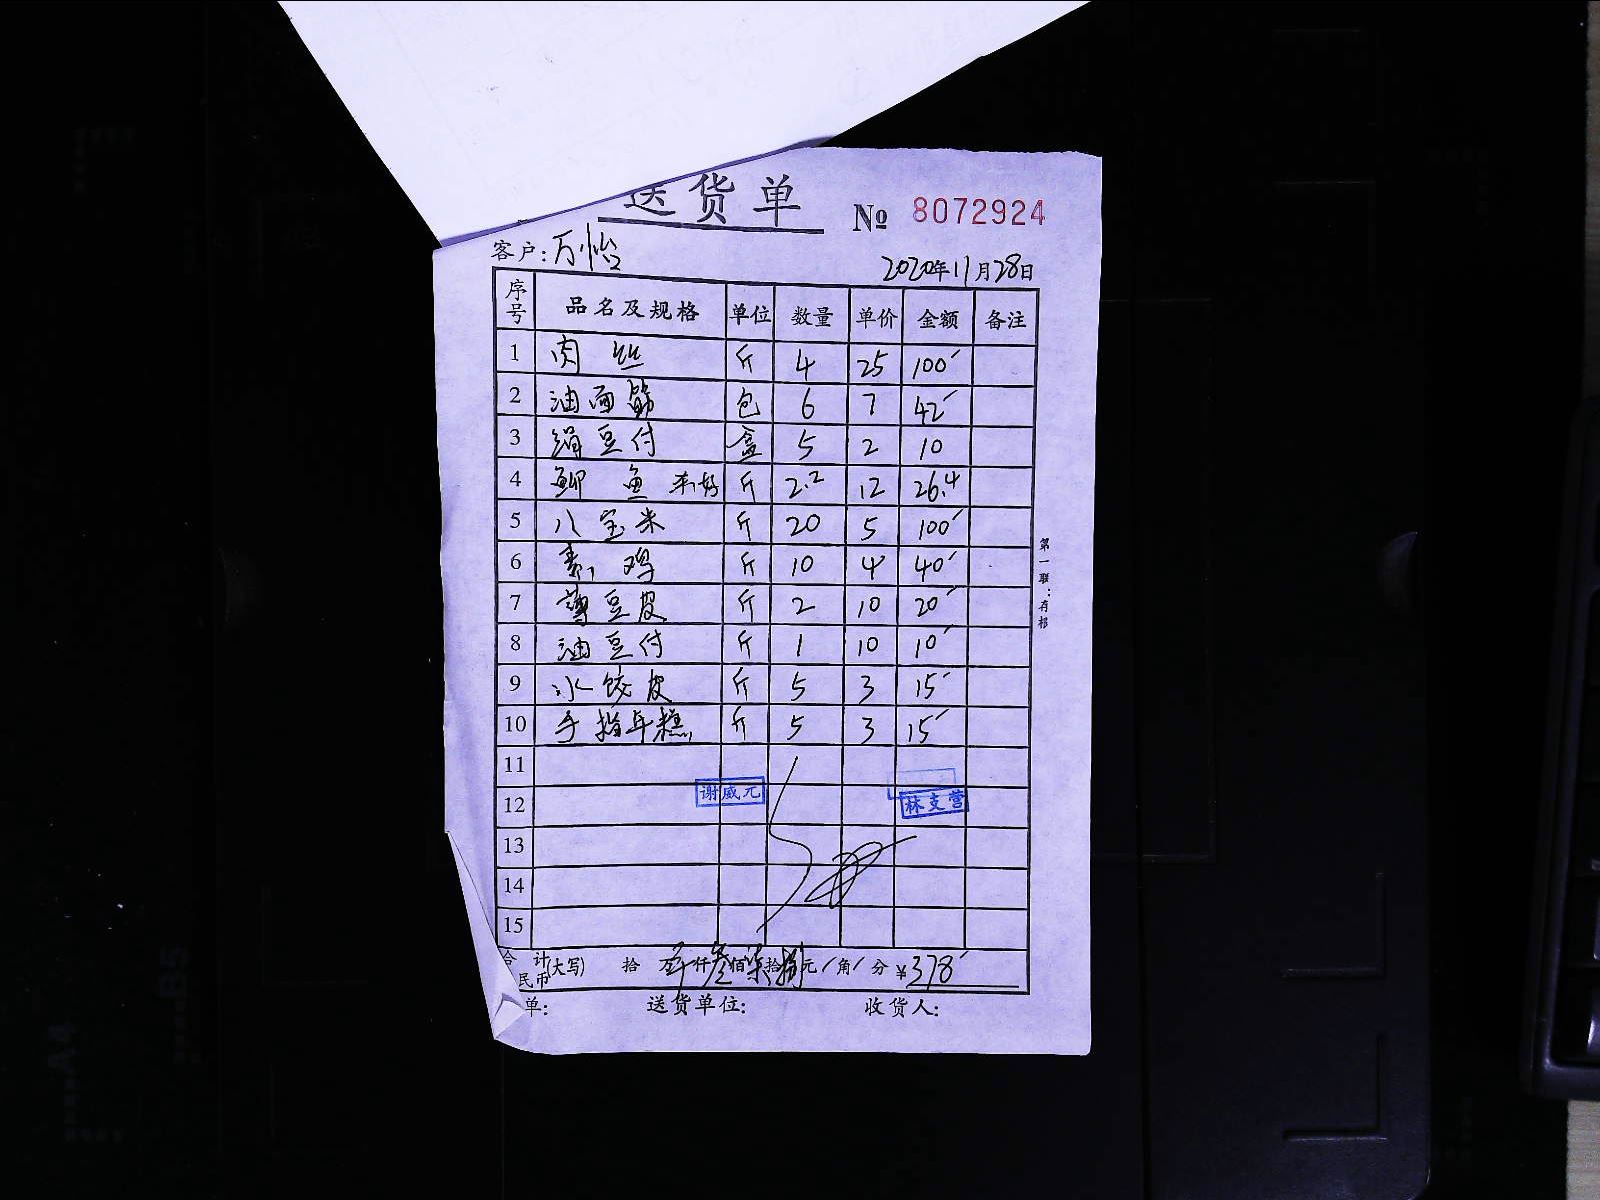 送货单 № 8072924
客户:万怡 2020年11月28日
序号 品名及规格 单位 数量 单价 金额 备注
1 肉丝 斤 4 25 100
2 油面筋 包 6 7 42
3 绢豆付 盒 5 2 10
4 鲫鱼 斤 2.2 12 26.4
5 八宝米 斤 20 5 100
6 素鸡 斤 10 4 40
7 薄豆皮 斤 2 10 20
8 油豆付 斤 1 10 10
9 水饺皮 斤 5 3 15
10 手指年糕 斤 5 3 15
11
谢威元 林支营
12
13
14
15
合计 民币(大写) 拾 万 仟叁佰柒拾捌元/角/分 ¥378
单: 送货单位: 收货人:
第一联:存根